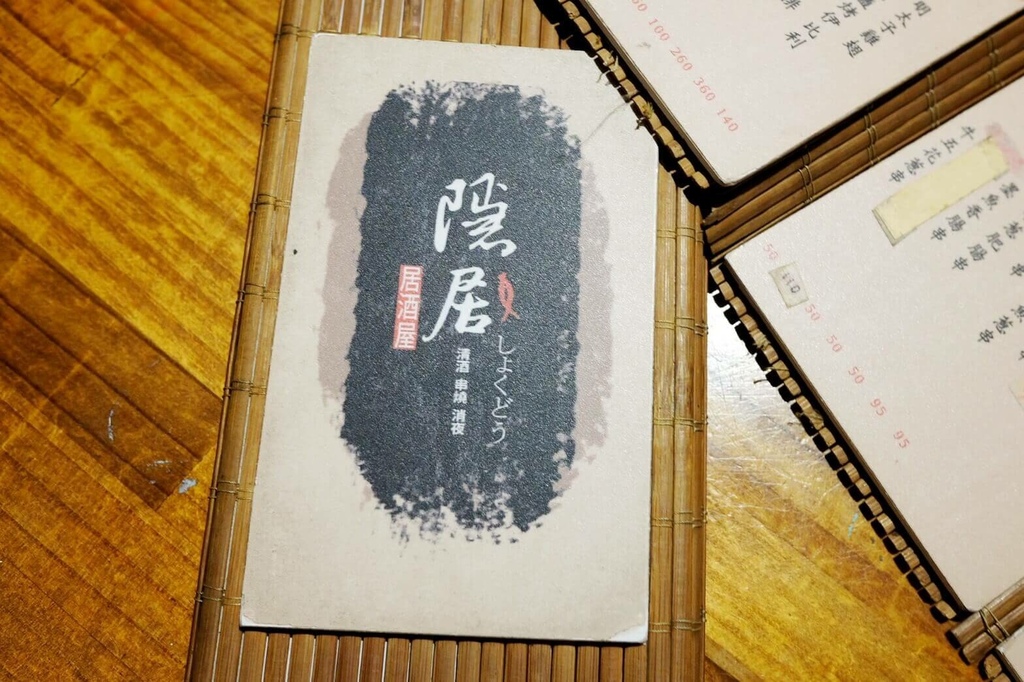 隱居
居酒屋
しょくどう
清酒 串燒 消夜
明太子雞翅
烤伊比利
50 100 260 360 140
牛五花蔥串
墨魚香腸串
蔥肥腸串
魚蔥串
50 110 50 50 50 95 95